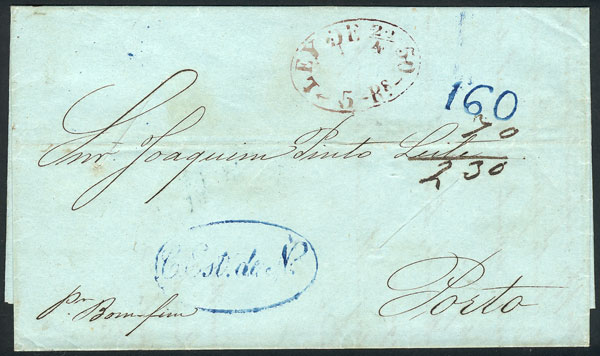 LEY DE 22 4 50
5 RS
160
70
Snr. Joaquim Pinto Leite
230
C. Est. de N.
pr Bomfim
Porto